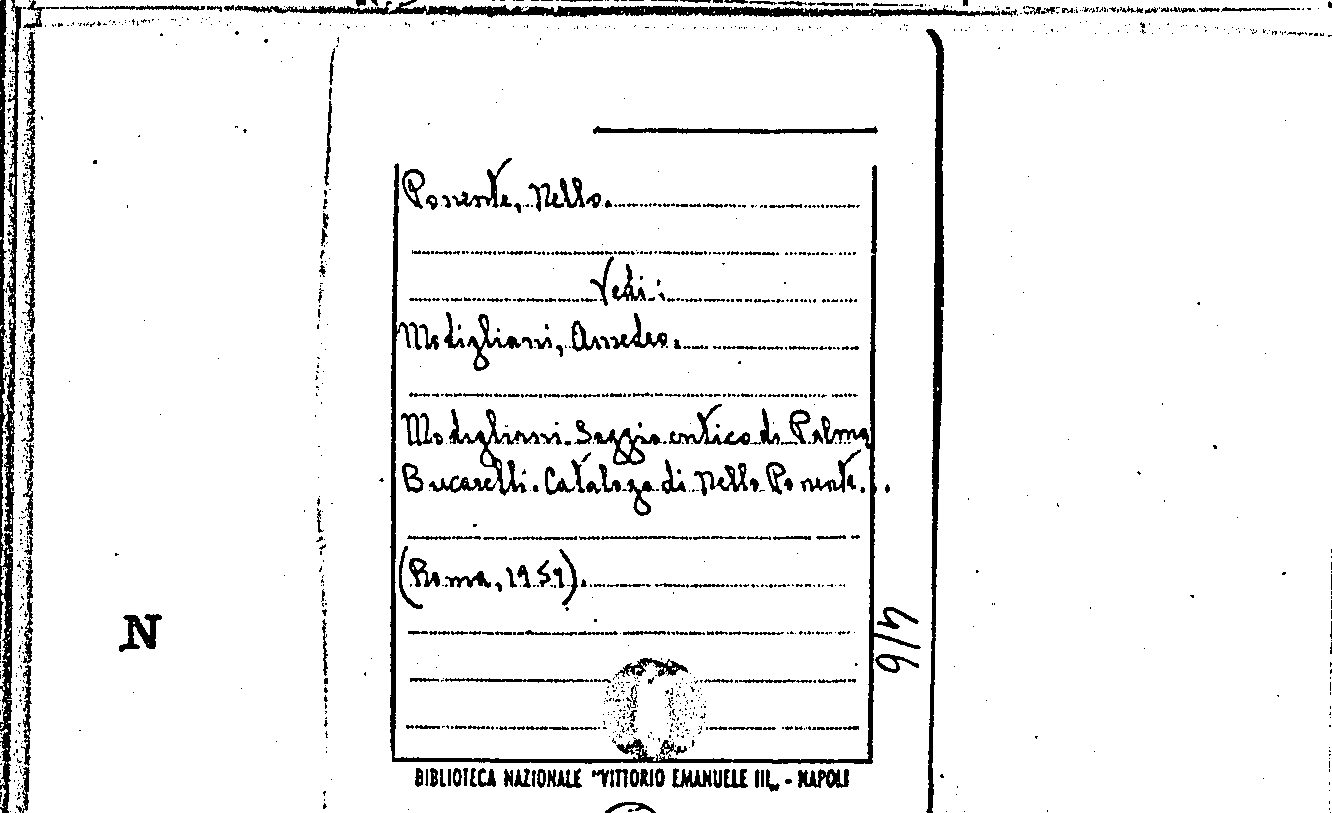 Ponente, Nello.
Vedi:
Modigliani, Amedeo.
Modigliani. Saggio critico di Palma
Bucarelli. Catalogo di Nello Ponente...
(Roma, 1959).
4/6
N
BIBLIOTECA NAZIONALE "VITTORIO EMANUELE III„ - NAPOLI